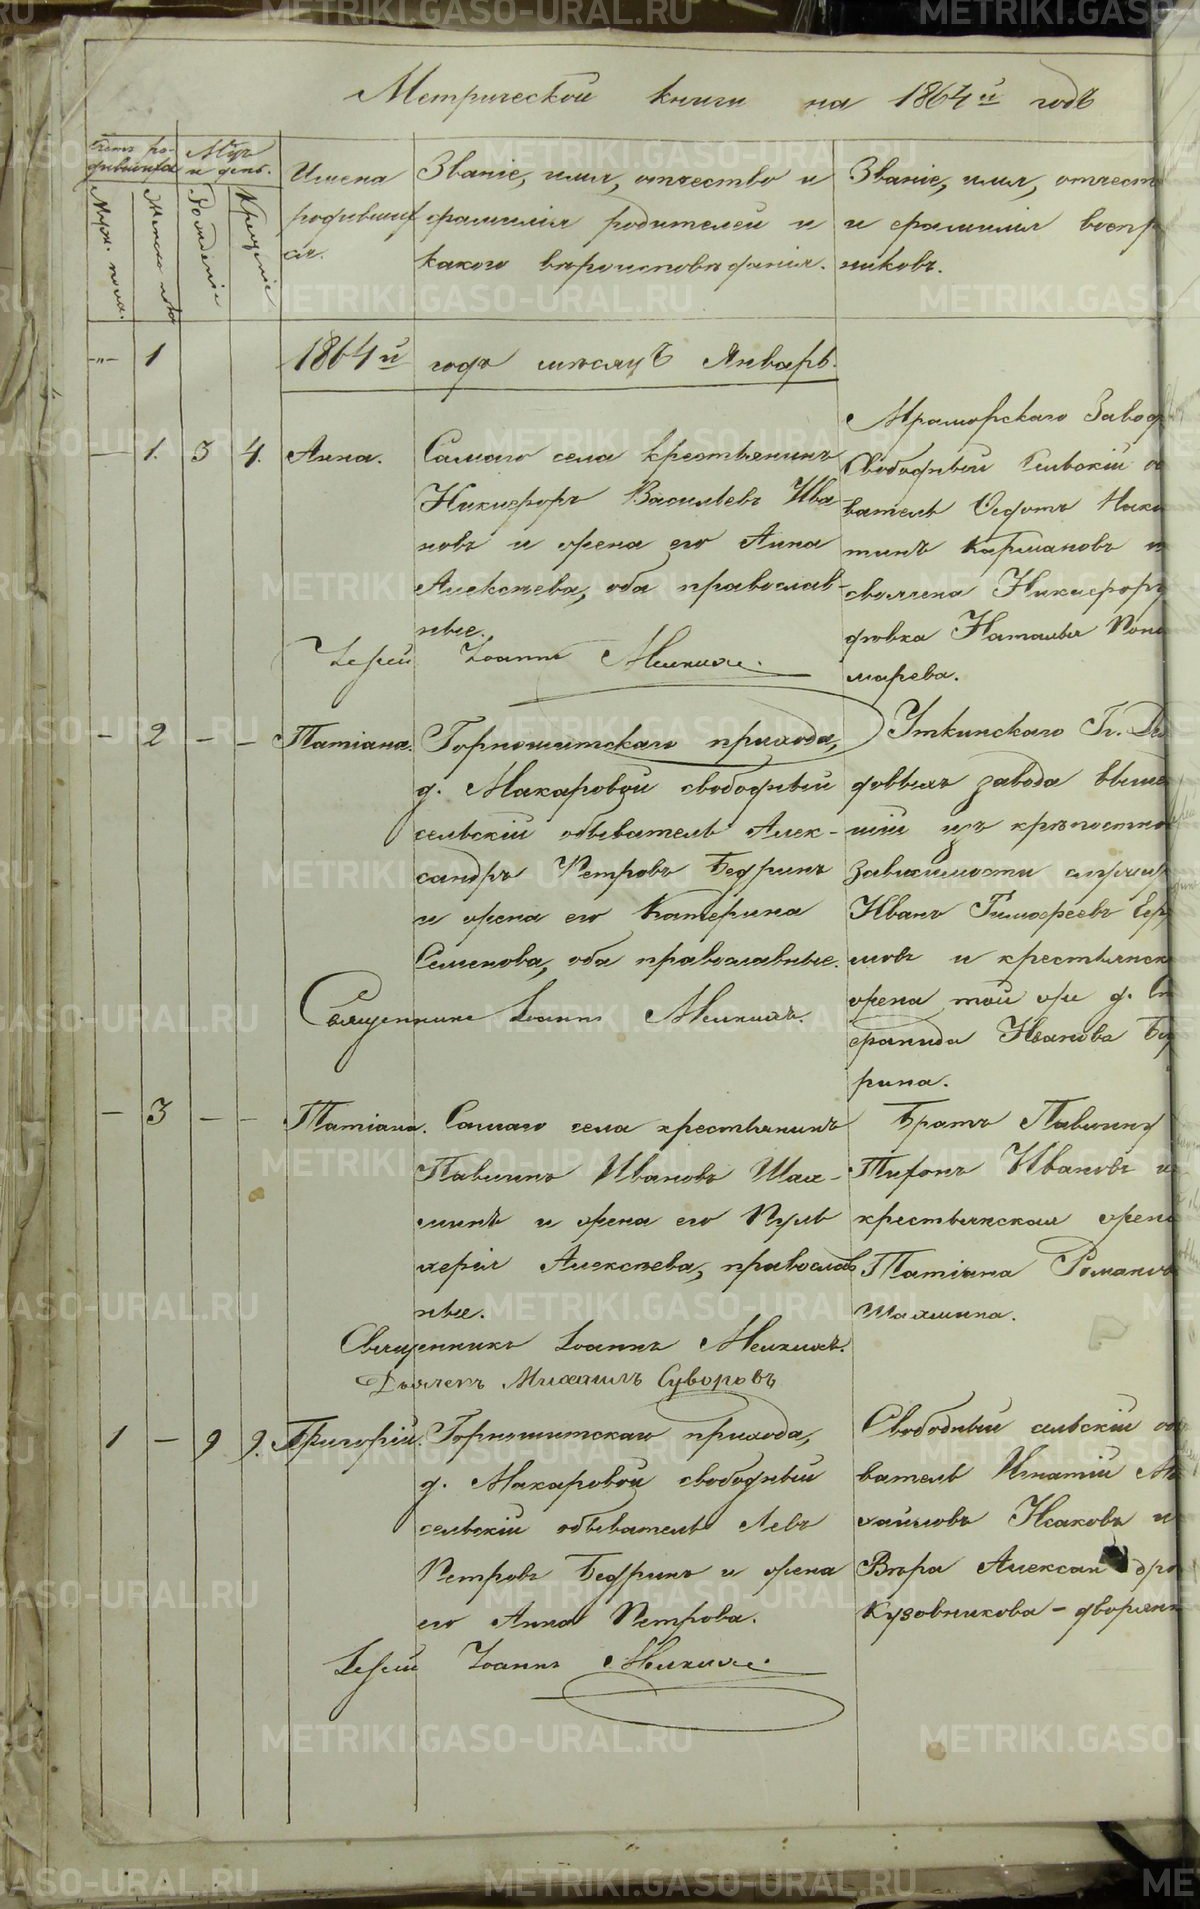 Метрической книги на 1864й годъ
Счетъ ро-
дившихся
Мѣсяцъ
и день.
Муж. пола.
Женск. пола
Рожденія
Крещенія
Имена
родивших
ся.
Званіе, имя, отчество и
фамилія родителей и
какого вѣроисповѣданія.
Званіе, имя, отчест
и фамилія воспр
никовъ.
-"- 1 1864й годъ мѣсяцъ Январь.
— 1. 3 4. Анна.
Самаго села крестьянинъ
Никифоръ Васильевъ Ива
новъ и жена его Анна
Алексѣева, оба православ-
ные.
Іерей Іоаннъ
Мраморскаго Завод
Свободный Сельскій о
ватель Федотъ Ники
тинъ Карманов и
своячена Никифор
дѣвка Наталья Поно
марева.
— 2 — — Татіана.
Горнощитскаго прихода,
д. Макаровой свободный
сельскій обыватель Алек-
сандръ Петровъ Бедринъ
и жена его Катерина
Семенова, оба православные.
Священникъ Іоаннъ
Уткинскаго Гг.
довыхъ завода выше
шій изъ крѣпостно
зависимости
Иванъ Тимофеевъ Ер
мовъ и крестьянск
жена той же д.
Иванова Бед
рина.
— 3 — — Татіана.
Самаго села крестьянинъ
Павлинъ Ивановъ Шах-
минъ и жена его Пуль
херія Алексѣева, православ
ные.
Священникъ Іоаннъ
Дьячекъ Михаилъ Суворовъ
Братъ Павлину
Тифонъ Ивановъ и
крестьянская жена
Татіана Романов
Шахмина.
1 — 9 9. Григорій.
Горнощитскаго прихода,
д. Макаровой свободный
сельскій обыватель Левъ
Петровъ Бедринъ и жена
его Анна Петрова.
Іерей Іоаннъ
Свободный сельскій об
ватель Игнатій Ми
хайловъ Исаковъ и
Вѣра Александро
Кузовникова – дворянк
METRIKI.GASO-URAL.RU